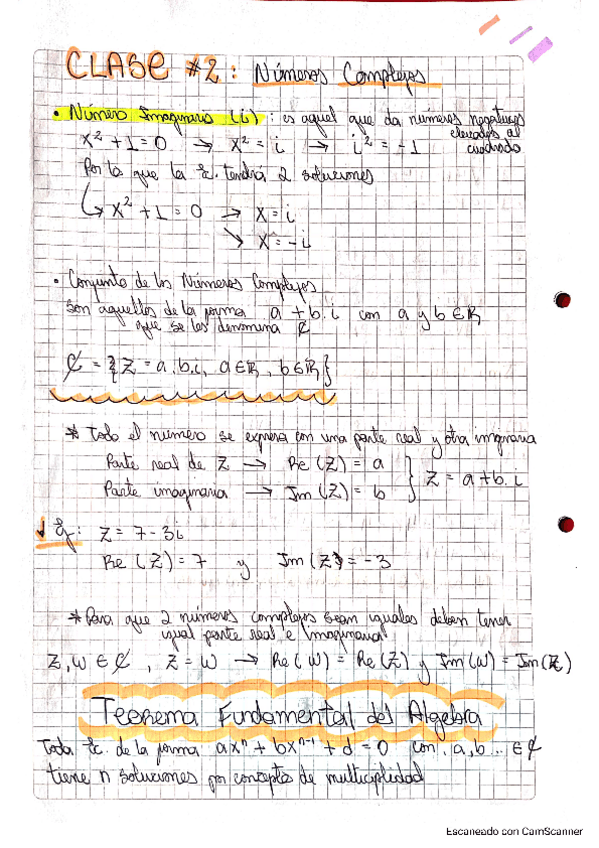 CLASE #2: Números Complejos
• Número Imaginario (i): es aquel que da números negativos
elevados al
cuadrado
x² + 1 = 0 → x² = i → i² = -1
Por lo que la Ec. tendrá 2 soluciones
↳ x² + 1 = 0 → x = i
↘ x = -i
• Conjunto de los Números Complejos
son aquellos de la forma a + b.i con a y b ∈ ℝ
que se los denomina ℂ
ℂ = {Z = a.b.i, a ∈ ℝ, b ∈ ℝ}
* Todo el numero se expresa con una parte real y otra imaginaria
Parte real de Z → Re(Z) = a
Parte imaginaria → Im(Z) = b } Z = a + b.i
↓ Ej: Z = 7 - 3i
Re(Z) = 7 y Im(Z) = -3
* Para que 2 números complejos sean iguales deben tener
igual parte real e Imaginaria
Z, W ∈ ℂ, Z = W → Re(W) = Re(Z) y Im(W) = Im(Z)
Teorema Fundamental del Algebra
Toda Ec. de la forma axⁿ + bxⁿ⁻¹ + d = 0 con a, b ... ∈ ℂ
tiene n soluciones por concepto de multiciplidad
Escaneado con CamScanner